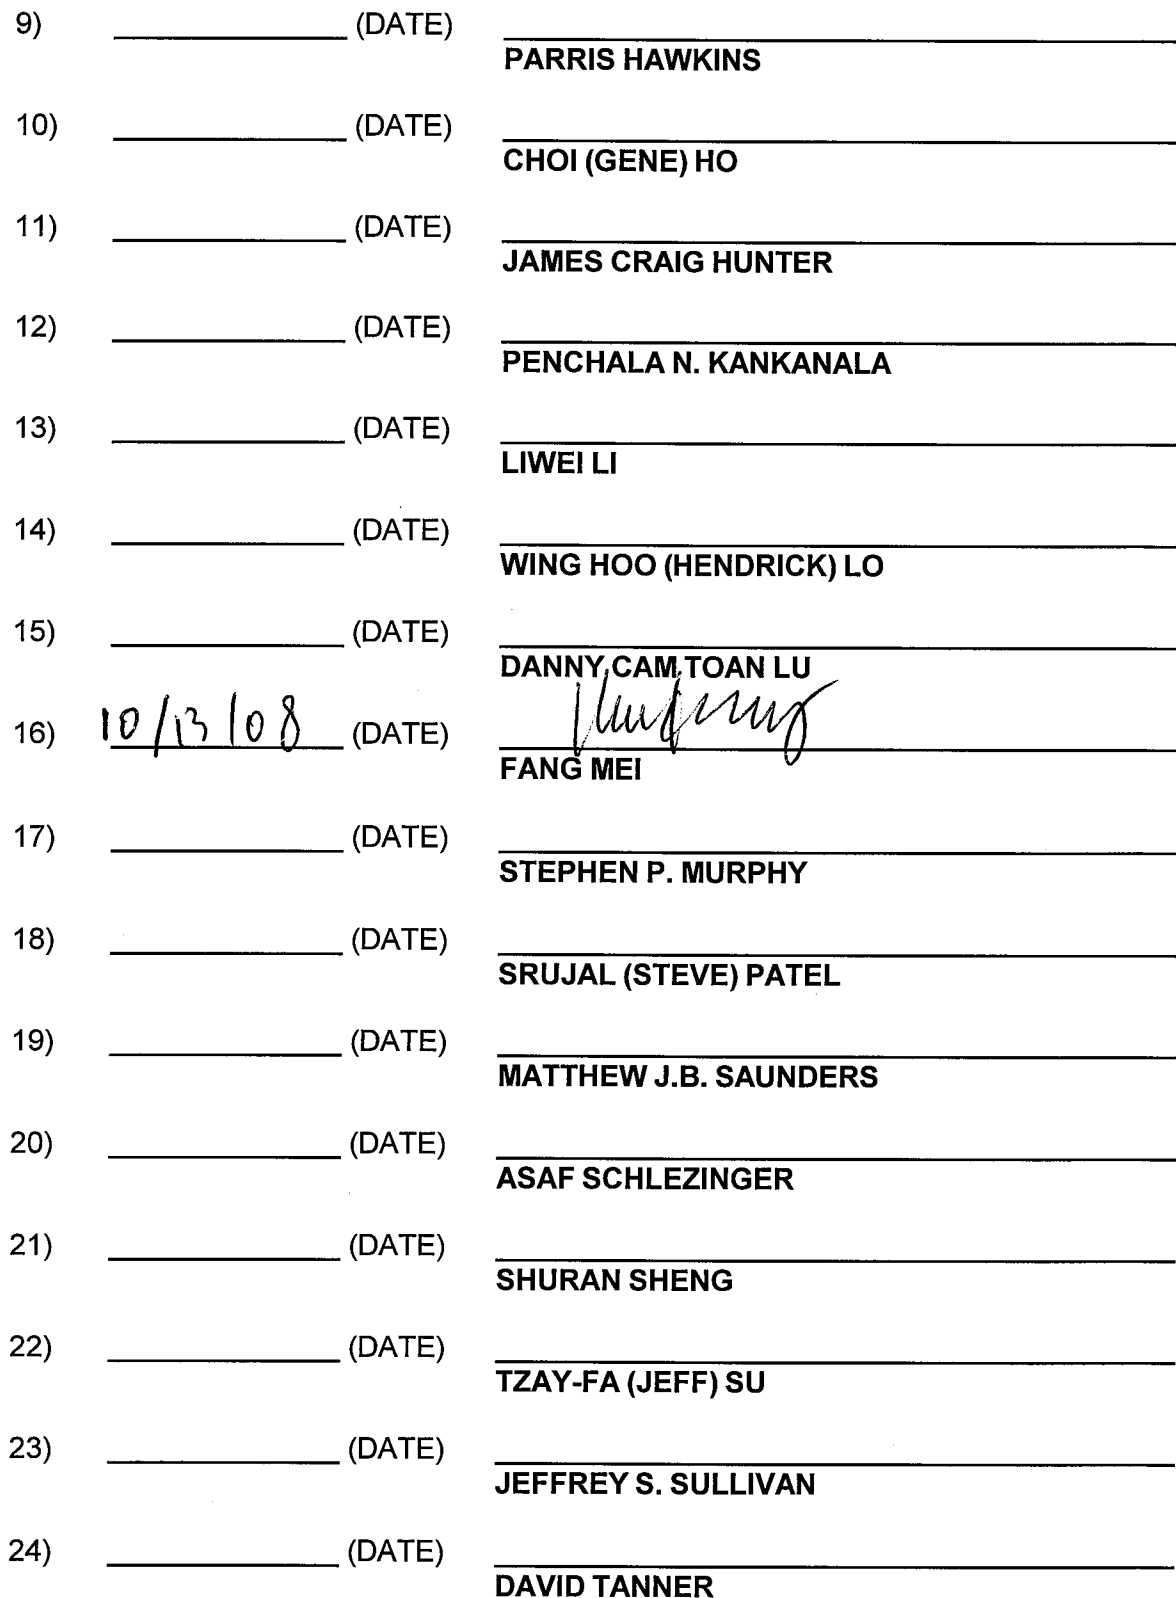 9) (DATE)
PARRIS HAWKINS
10) (DATE)
CHOI (GENE) HO
11) (DATE)
JAMES CRAIG HUNTER
12) (DATE)
PENCHALA N. KANKANALA
13) (DATE)
LIWEI LI
14) (DATE)
WING HOO (HENDRICK) LO
15) (DATE)
DANNY CAM TOAN LU
16) 10/13/08 (DATE)
FANG MEI
17) (DATE)
STEPHEN P. MURPHY
18) (DATE)
SRUJAL (STEVE) PATEL
19) (DATE)
MATTHEW J.B. SAUNDERS
20) (DATE)
ASAF SCHLEZINGER
21) (DATE)
SHURAN SHENG
22) (DATE)
TZAY-FA (JEFF) SU
23) (DATE)
JEFFREY S. SULLIVAN
24) (DATE)
DAVID TANNER